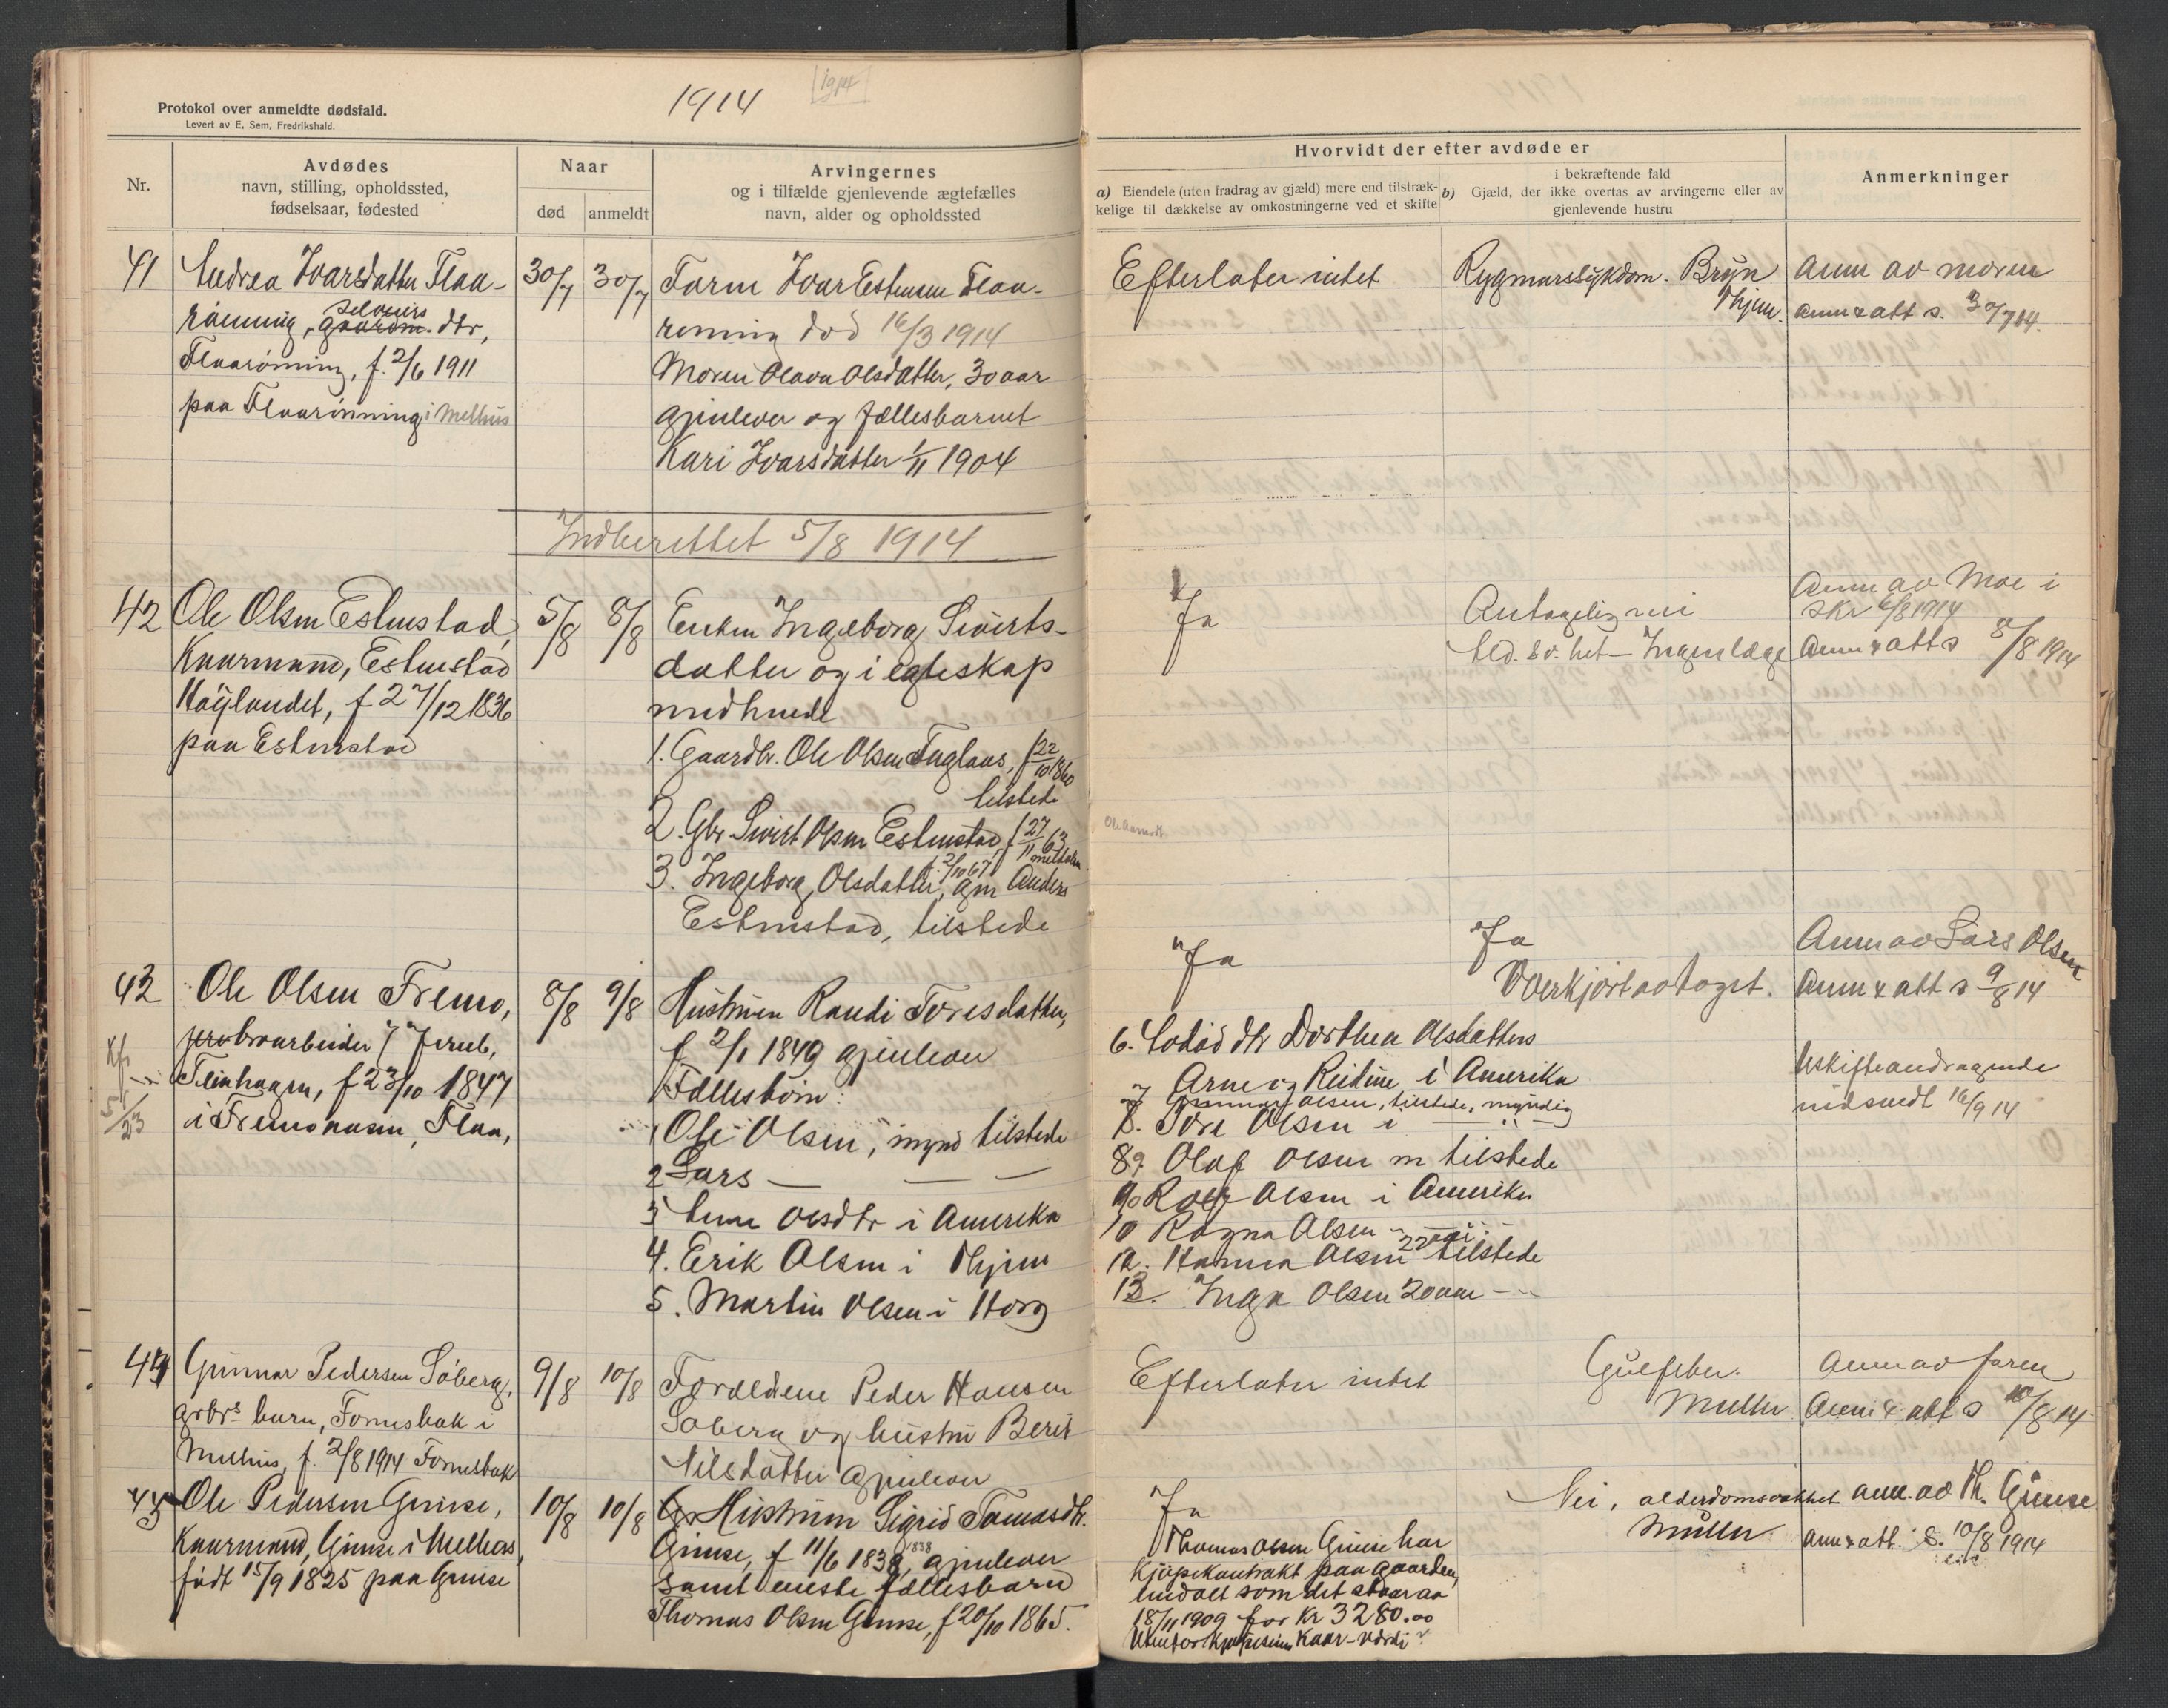 1914
[1914]
Protokol over anmeldte dødsfald.
Levert av E. Sem, Fredrikshald.
Nr.
Avdødes
navn, stilling, opholdssted,
fødselsaar, fødested
Naar
død
anmeldt
Arvingernes
og i tilfælde gjenlevende ægtefælles
navn, alder og opholdssted
Hvorvidt der efter avdøde er
a) Eiendele (uten fradrag av gjæld) mere end tilstræk-
kelige til dækkelse av omkostningerne ved et skifte
i bekræftende fald
b) Gjæld, der ikke overtas av arvingerne eller av
gjenlevende hustru
Anmerkninger
41
Andrea Ivarsdatter Flaa-
rönning, gaardm. dtr,
Flaarönning, f. 2/6 1911
paa Flaarönning i Melhus
30/7
30/7
Faren Ivar Estensen Flaa-
rönning död 16/3 1914
Moren Olava Olsdatter, 30 aar
gjenlever og fællesbarnet
Kari Ivarsdatter 1/11 1904
Efterlater intet
Rygmarssykdom. Bryn
Thjem.
Anm av moren
anm & att s. 30/7 14.
Indberettet 5/8 1914
42
Ole Olsen Estenstad,
Kaarmand, Estenstad
Höylandet, f 27/12 1836
paa Estenstad
5/8
8/8
Enken Ingeborg Siverts-
datter og i egteskap
med hende
1. Gaardbr. Ole Olsen Fuglaas, f 22/10 1860
tilstede
2. Gbr Sivert Olsen Estenstad, f 27/11 63
Meldalen
3. Ingeborg Olsdatter, f. 2/10 67 gm Anders
Estenstad, tilstede
Ja
Antagelig nei
Ingen læge
Anm av Moe i
skr 6/8 1914
Anm & att s 8/8 1914
43
Ole Olsen Fremo,
broarbeider v Jernb,
f 23/10 1847
i Fremo Flaa,
8/8
9/8
Hustruen Randi Toresdatter,
f 2/1 1849 gjenlever
Fællesbörn:
1 Ole Olsen, mynd tilstede
2 Lars — — —
3 Olsdtr i Amerika
4. Erik Olsen i Thjem
5. Martin Olsen i Horg
Ja
Ja
Overkjört av toget.
Anm av Lars Olsen
Anm & att s 9/8 14
6. Dorthea Olsdatters
Arne og i Amerika
7 Olsen, tilstede, myndig
8. Tore Olsen i — " —
9. Olaf Olsen m tilstede
10 Rolf Olsen i Amerika
Ragna Olsen
12. Hanna Olsen 22 aar tilstede
13. Inga Olsen 20 aar — "
Uskifteandragende
indsendt 16/9 14
44
Gunnar Pedersen Söberg,
grbrs barn, Fornesbak i
Melhus, f. 2/8 1914 Fornesbak
9/8
10/8
Forældrene Peder Hansen
Söberg og hustru Berit
Nilsdatter gjenlever
Efterlater intet
Gulfeber.
Müller
Anm av faren
Anm & att s 10/8 14
45
Ole Pedersen Gimse,
Kaarmand, Gimse i Melhus,
födt 15/9 1825 paa Gimse
10/8
10/8
Hustruen Sigrid Tomasdtr.
Gimse, f 11/6 1838, gjenlever
samt eneste fællesbarn
Thomas Olsen Gimse, f 20/10 1865.
Ja
Thomas Olsen Gimse har
kjöpekontrakt paa gaarden,
med alt som det staar av
18/11 1909 for kr 3280.00
Kaar-værdi
Nei, alderdomssvakhet
Müller
anm. av Th. Gimse
anm & att. s. 10/8 1914